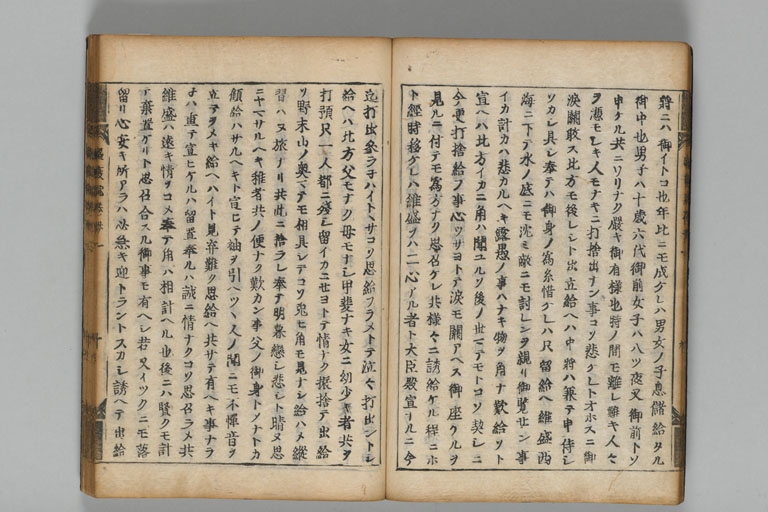 將ニハ御イトコ也年比ニモ成ケレハ男女ノ子息儲給タル
御中也男子ハ十歳六代御前女子ハ八ツ夜叉御前トソ
申ケル共ニワリナク嚴キ御有様也狩ノ間モ離レ難キ人々
ヲ憑モシキ人モナキニ打捨出ナン事コソ悲ケレトオホスニ御
涙關敢ス北方モ後レシト出立給ヘハ中將ハ兼テ申侍シ
ツカレ具シ奉テハ御身ノ為糸惜ケレハ只留給ヘ維盛西
海ニ下テ水ノ底ニモ沈ミ敵ニモ討レンヲ親リ御覧セン事
イカ計カハ悲カルヘキ露愚ノ事ハナキ物ヲ角ナ歎給ソト
宣ヘハ北方イカニ角ハ聞ユルソ後ノ世マテモトコソ契シニ
今更打捨給フ事心ツサヨトテ涙モ關アヘス御座クルヲ
見ルニ付テモ為方ナク思召ケレ共様々ニ誘給ケル程ニホ
ト經時移ケレハ維盛ヲハ二心アル者ト大臣殿宣ナルニ今
迄打出參ラネハイトヽサコソ思給フラメトテ泣々打出ントシ
給ヘハ北方父モナク母モナシ甲斐ナキ女ニ幼少キ者共ヲ
打預只一人都ニ殘シ留イカニセヨトテ情ナク振捨テ出給
ソ野末山ノ奥マテモ相具シテコソ兎モ角モ見ナシ給ハメ縱
習ハヌ旅ナリ共此ニ捨ラレ奉テ明暮戀シ悲シト晴ヌ思
ニヤヘサルヘキ稚者共ノ便ナク歎カン事父ノ御身トソナトカ
顧給ハサルヘキト宣ヒテ袖ヲ引ヘツヽ人ノ聞ニモ不憚音ヲ
立テヲメキ給ヘハイト見弃難ク思給ヘ共サテ有ヘキ事ナラ
子ハ重テ宣ヒケルハ留置奉ルハ誠ニ情ナクコソ思召ラメ共
維盛ハ遠キ情ヲコメ奉テ角ハ相計ヘル也後ニハ賢クモ計
テ棄置ケリト思召合スル御事モ有ヘシ若又イツクニモ落
留リ心安キ所アラハ忩急キ迎トラントスカシ誘ヘテ出給